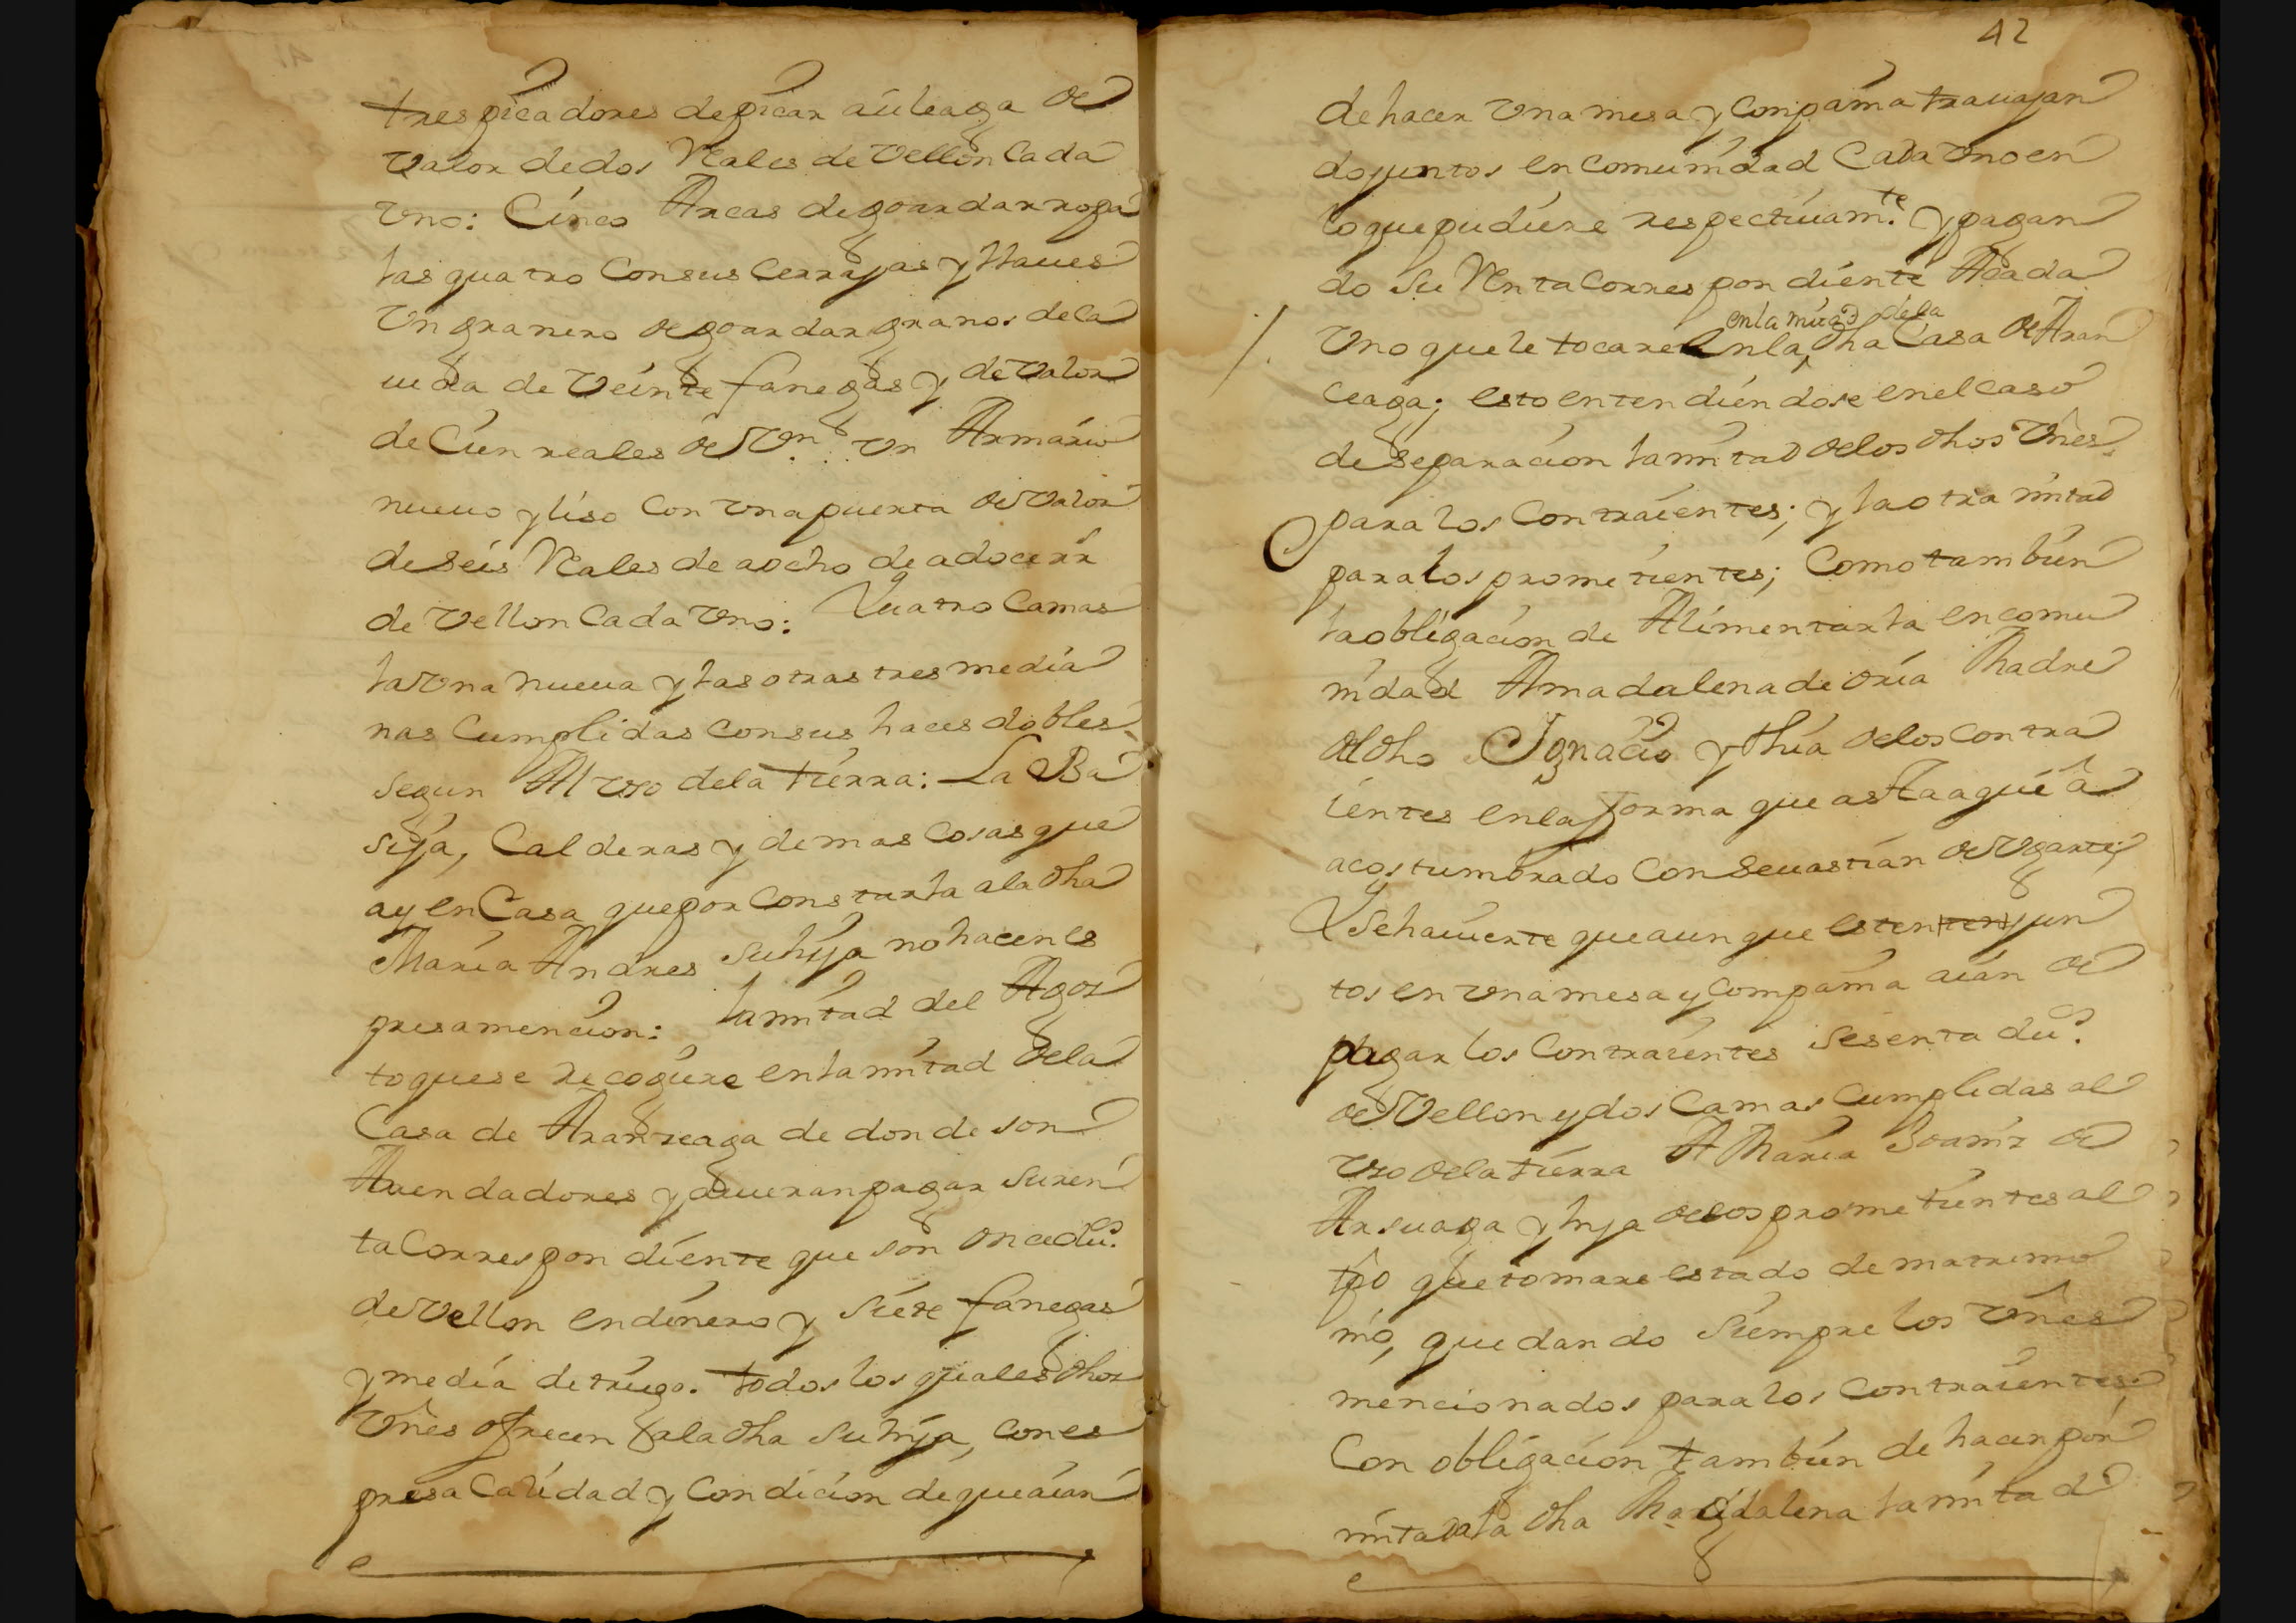 tres picadores de picar auleaga de
valor de dos Reales de vellon cada
vno: Cinco Arcas de goardar ropa
las quatro Con sus Cerrajas y llaues
Vn granero de goardar granos de ca
uida de veinte fanegas y de valor
de Cien reales de Vn. Vn Armario
nueuo y liso Con vna puerta de valor
de seis Reales de aocho de adoce rr
de vellon Cada vno: Quatro Camas
la vna nueua y las otras tres media
nas Cumplidas con sus haces dobles
segun Al vso dela tierra: La Ba
sija, Calderas y demas Cosas que
ay en Casa que por Constarla ala dha
Maria Andres su hija no hacen es
presa mencion: la mitad del Agos
to que se recogiere en la mitad dela
Casa de Aranzeaga de donde son
Arrendadores y deueran pagar su ren
ta Correspondiente que son once du.s
de vellon en dinero y siete fanegas
y media de trigo. todos los quales dhos
Vnes ofrecen ala dha su hija, con es
presa Calidad y Condicion de que aian
42
de hacer vna mesa y Compania trauajan
do juntos en Comunidad Cada vno en
lo que pudiere respectiuam.te y pagan
do su Renta Correspondiente Acada
en la mitad dela
Vno que le tocare en la dha Casa de Aran
ceaga; esto entendiendose en el caso
de separacion la mitad de los dhos Vnes
para los Contraientes; y la otra mitad
para los prometientes; Como tambien
la obligacion de Alimentar la en comu
nidad Amadalena de oria Madre
del dho Ignacio y thia de los contra
ientes en la forma que asta aqui a
acostumbrado Con Seuastian de Vgarte;
Y se hauierte que aun que esten ten jun
tos en vna mesa y Compania aian de
pagar los Contraientes sesenta du.s
de Vellon y dos Camas Cumplidas al
vso dela tierra A Maria Beatriz de
Arsuaga y hija de los prometientes al
tpo que tomare estado de matrimo
nio, quedando siempre los Vnes
mencionados para los Contraientes,
Con obligacion tambien de hacer por
mitad ala dha Magdalena la mitad